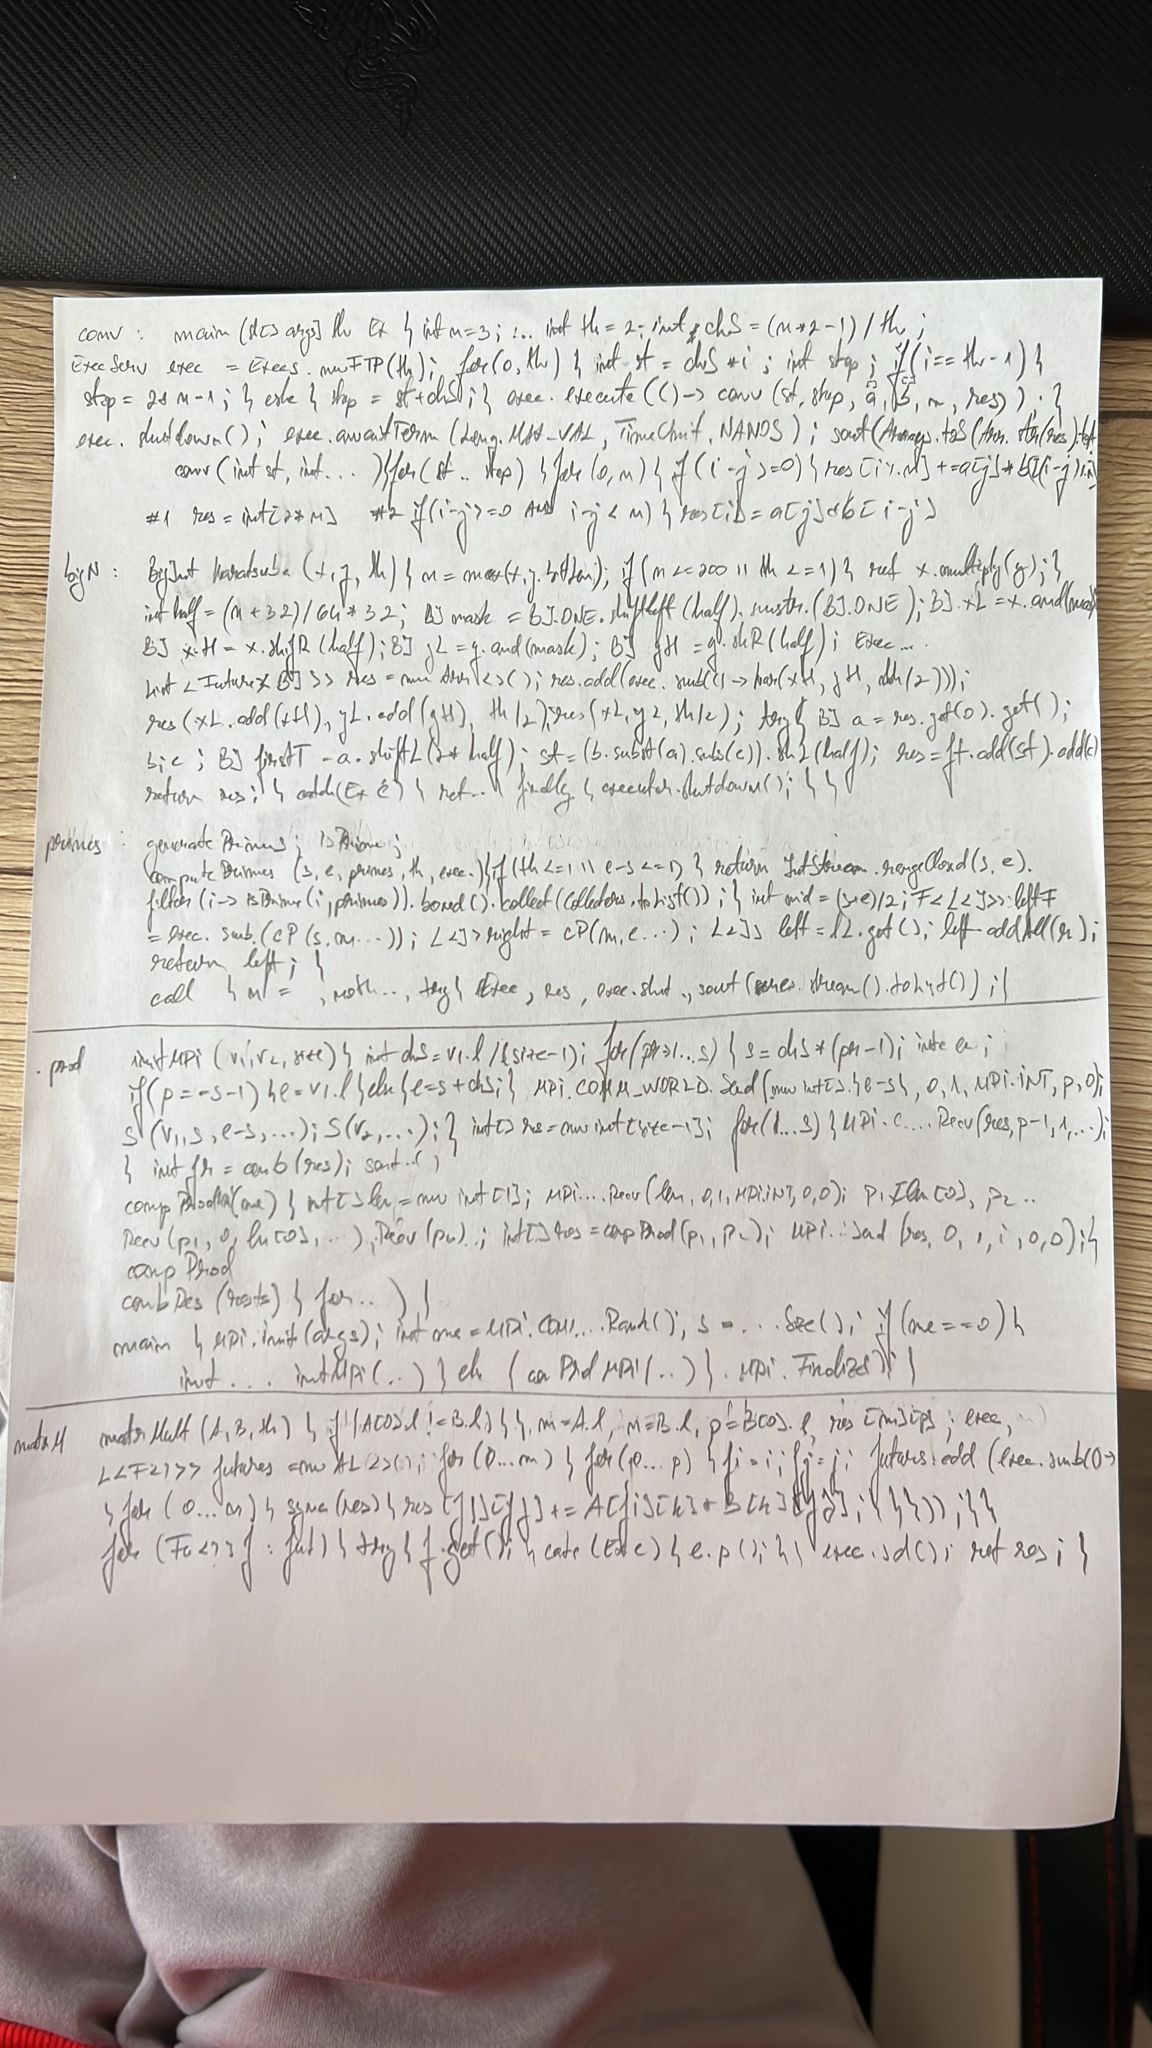 conv : main (st[] args) th Ex { int n=3; ... int th = 2; int chS = (n*2-1) / th ;
ExecServ exec = Execs. newFTP(th); for(0,th) { int st = chS * i ; int stop ; if (i == th-1) {
stop = 2*n-1; } else { stop = st+chS; } exec. execute (() -> conv (st, stop, a, b, n, res)) . }
exec. shutdown(); exec. awaitTerm (Long. MAX-VAL, TimeUnit. NANOS) ; sout(Arrays. toS(
conv (int st, int ... ){for(st .. stop) { for (0, n) { if (i-j >=0) { res [i% n] += a[j] * b[(i-j)%n]
#1 res = int[2*n] #2 if(i-j>=0 AND i-j < n) { res[i] = a[j]*b[i-j]
bigN : BigInt karatsuba (x,y, th) { n = max(x,y.bitLen); if (n<=200 || th <=1) { ret x.multiply(y); }
int half = (n+32)/64*32; BI mask = BI.ONE. shiftLeft (half). (BI.ONE); BI xL = x.and(mask
BI xH = x.shiftR (half); BI yL = y.and(mask); BI yH = y.shR(half); Exec...
List <Future< BI>> res = new Arr<>(); res.add(exec. sub(()->kar(xH, yH, th/2)));
res (xL.add(xH), yL.add(yH), th/2); res(xL, yL, th/2); try{ BI a = res.get(0).get();
b; c ; BI firstT = a.shiftL(2* half); st = (b.subst(a).subs(c)). shL(half); res = ft.add(st).add(c)
return res; } catch(Ex e) { ret... } finally { executor.shutdown(); } }
primes : generate Primes; isPrime;
compute Primes (s, e, primes, th, exec.){if(th<=1 || e-s<=1) { return IntStream.rangeClosed(s, e).
filter (i-> isPrime(i, primes)). boxed(). collect(Collectors. toList()); } int mid = (s+e)/2; F<L<I>> leftF
= exec. sub. (cP (s, m...)); L<I> right = cP(m, e...); L<I> left = lL.get(); left.addAll(r);
return left; }
call { n = , , try{ Exec, res, exec.shut ., sout ( .stream().toList()) ; }
. prod initMPI (v1,v2, size) { int chS = v1.l /(size-1); for(pr=1...s) { s = chS*(pr-1); int e ;
if(p == s-1) { e = v1.l } else { e = s + chS; } MPI. COMM_WORLD. Send (new int[] {e-s}, 0, 1, MPI.INT, p, 0);
S (v1, s, e-s, ...); S(v2, ...); } int[] res = new int[size-1]; for(1...s) { MPI. c.... Recv(res, p-1, 1, ...);
} int fr = comb(res); sout..()
comp (me) { int[] len = new int[1]; MPI.... Recv(len, 0, 1, MPI.INT, 0,0); p1 [len[0]], p2 ..
Recv (p1, 0, len[0], ...), Recv (p2) ..; int[] res = compProd(p1, p2); MPI ... Send (res, 0, 1, i, 0, 0); }
comp Prod
combRes (rests) { for .. ) }
main { MPI. init (args); int me = MPI. COM.... Rank(); s = ... Size(); if (me ==0) {
init . . . initMPI(..) } else { MPI (..) } . MPI. Finalize(); }
matrM matrMult (A, B, th) { if (A[0].l != B.l) { }, m=A.l, n=B.l, p=B[0].l, res [m][p] ; exec,
L<F<?>> futures = new AL<>(); for (0...m) { for (0... p) { fi = i; fj = j; futures.add (exec.sub(()->
{ for (0...n) { sync(res) { res [fi][fj] += A[fi][k] * B[k][fj]; } } }); } }
for (Fu<?> f : fut) { try { f.get(); } catc (Ex e) { e.p(); } } exec.sd(); ret res ; }